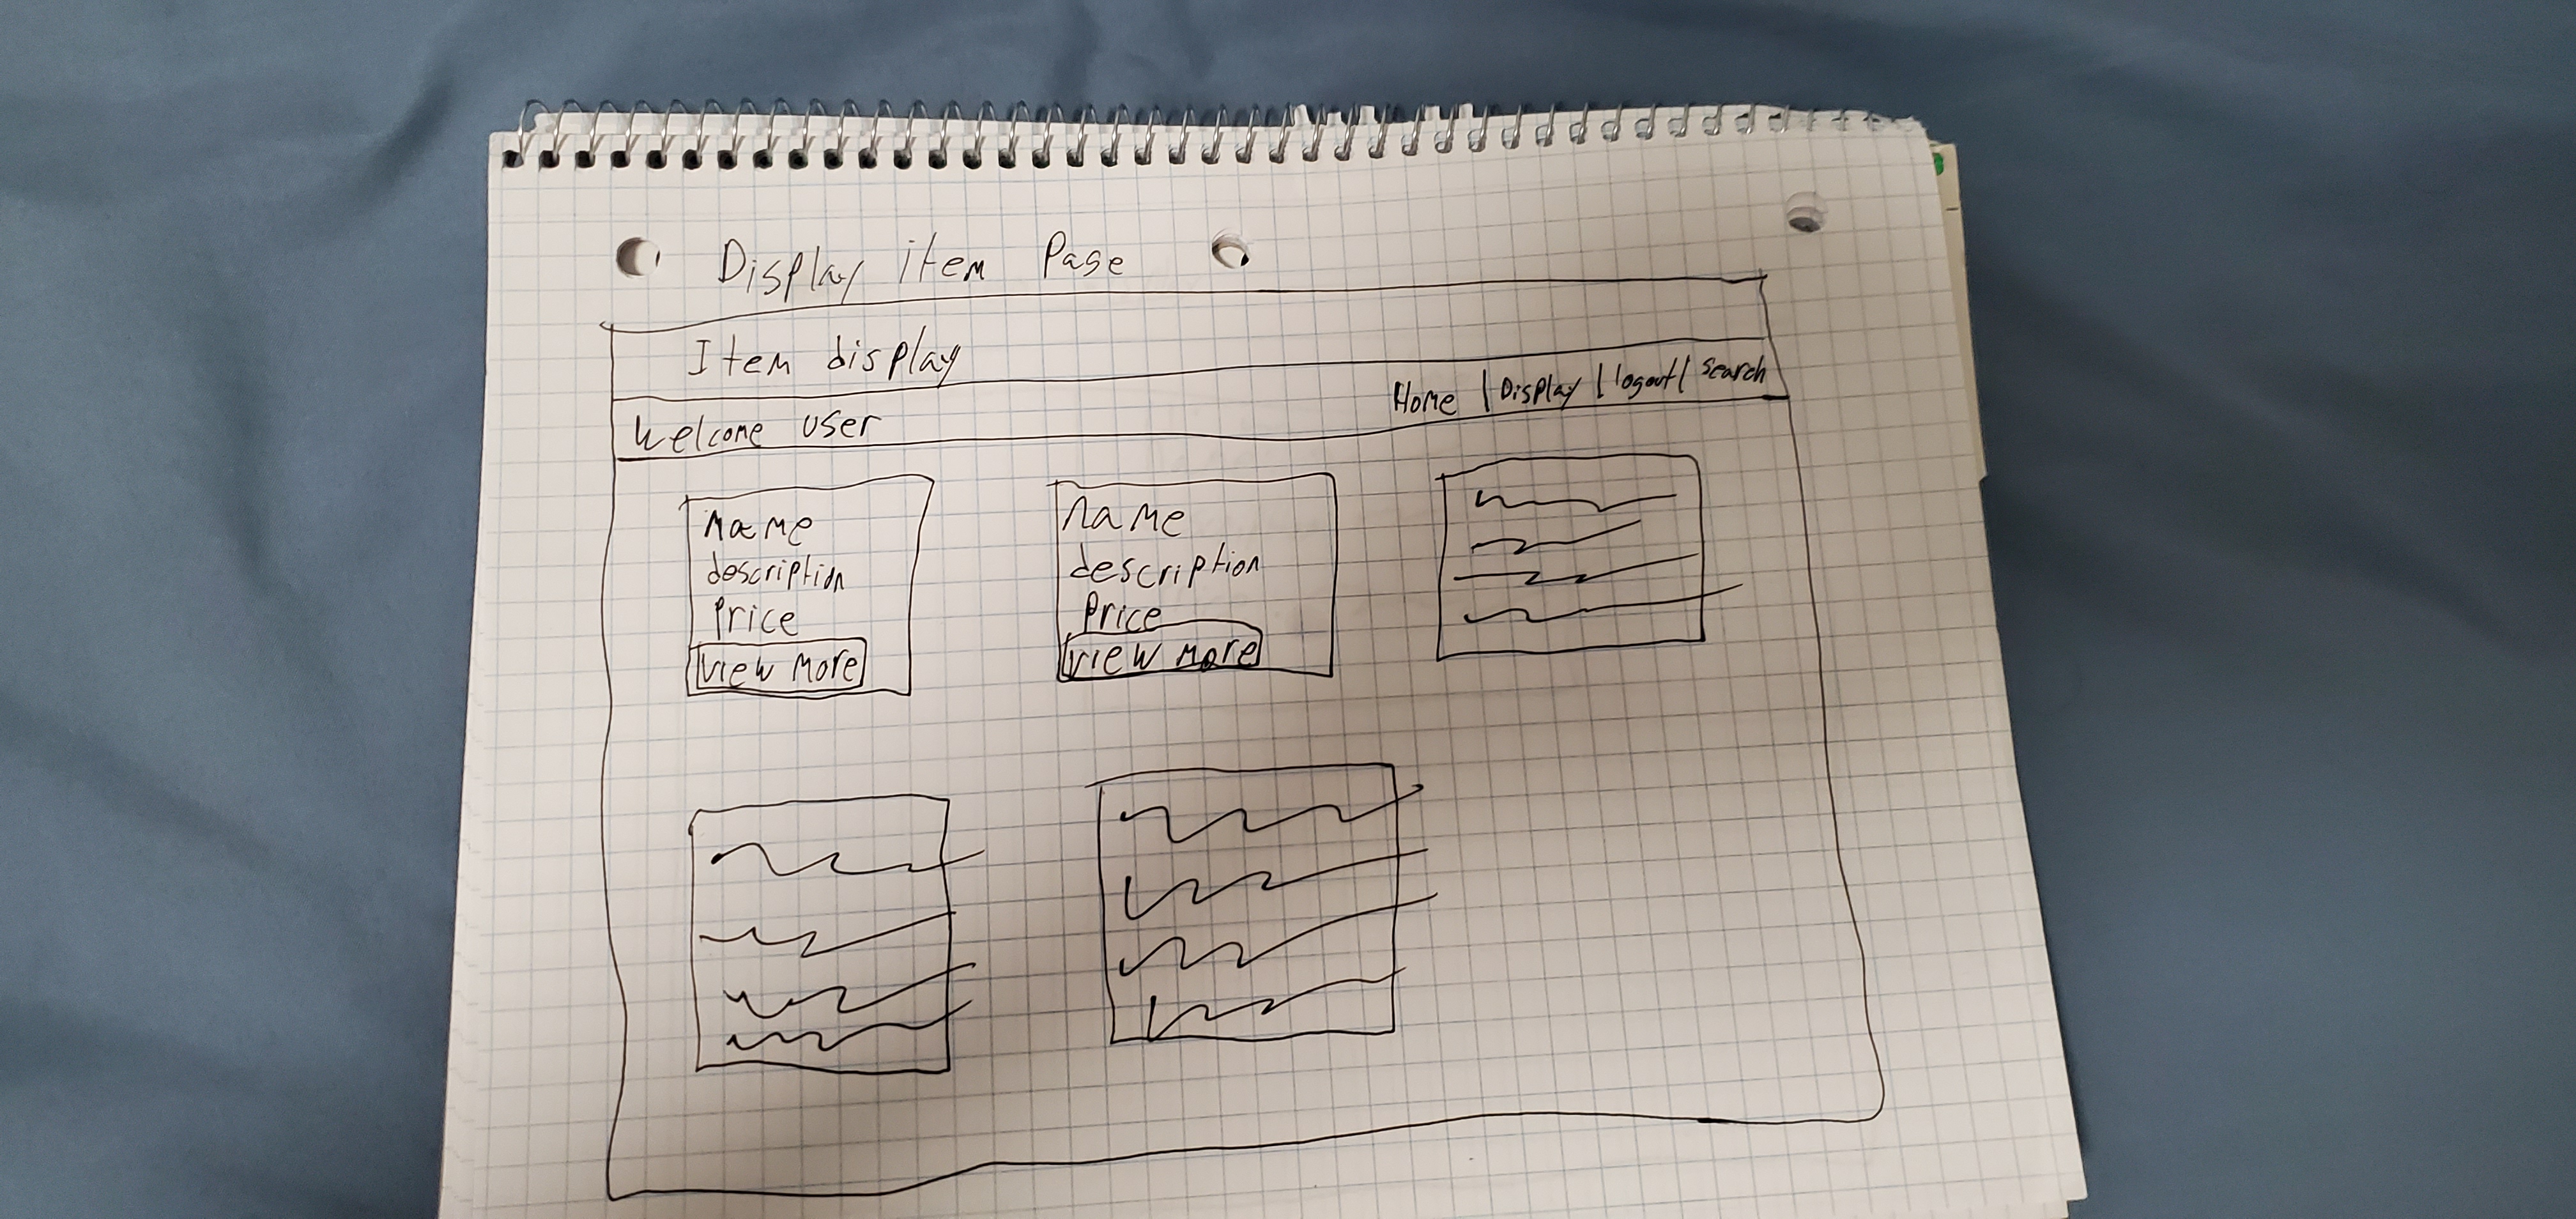 Display item Page
Item display
Welcome user
Home | Display | logout | search
Name
description
Price
View More
Name
description
Price
View More